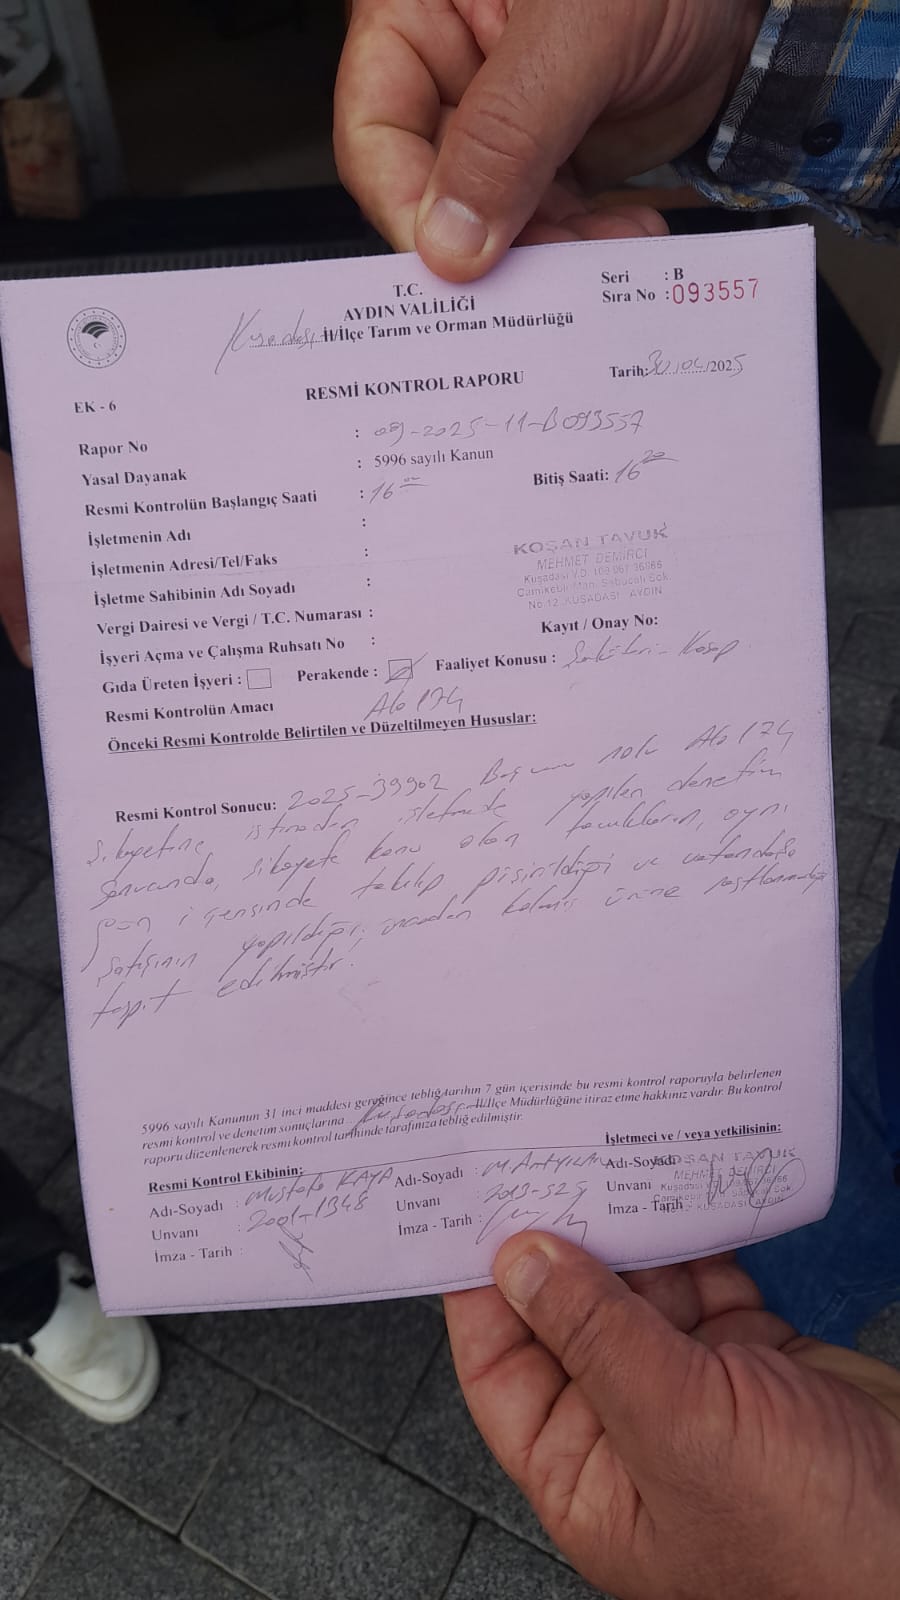 T.C.
AYDIN VALİLİĞİ
Kuşadası İl/İlçe Tarım ve Orman Müdürlüğü
Seri : B
Sıra No : 093557
RESMİ KONTROL RAPORU
Tarih: 30/04/2025
EK - 6
Rapor No : 09-2025-11-B093557
Yasal Dayanak : 5996 sayılı Kanun
Resmi Kontrolün Başlangıç Saati : 16 00 Bitiş Saati: 16 20
İşletmenin Adı :
İşletmenin Adresi/Tel/Faks :
İşletme Sahibinin Adı Soyadı :
Vergi Dairesi ve Vergi / T.C. Numarası :
İşyeri Açma ve Çalışma Ruhsatı No :
KOŞAN TAVUK
MEHMET DEMİRCİ
Kuşadası V.D.
Camikebir Mah. Sabucalı Sok.
No:12 KUŞADASI - AYDIN
Kayıt / Onay No:
Gıda Üreten İşyeri : Perakende : Faaliyet Konusu : Kasap
Resmi Kontrolün Amacı Alo 174
Önceki Resmi Kontrolde Belirtilen ve Düzeltilmeyen Hususlar:
Resmi Kontrol Sonucu: 2025-39902 Başvuru nolu Alo 174
şikayetine istinaden işletmede yapılan denetim
sonucunda, şikayete konu olan tavukların, aynı
gün içerisinde takılıp pişirildiği ve vatandaşa
satışının yapıldığı, kalmış ürüne rastlanmadığı
tespit edilmiştir.
5996 sayılı Kanunun 31 inci maddesi gereğince tebliğ tarihin 7 gün içerisinde bu resmi kontrol raporuyla belirlenen
resmi kontrol ve denetim sonuçlarına Kuşadası İl/İlçe Müdürlüğüne itiraz etme hakkınız vardır. Bu kontrol
raporu düzenlenerek resmi kontrol tarihinde tarafınıza tebliğ edilmiştir.
Resmi Kontrol Ekibinin:
İşletmeci ve / veya yetkilisinin:
Adı-Soyadı : Mustafa KAYA Adı-Soyadı : Adı-Soyadı
Unvanı : 2001-1348 Unvanı : Unvanı
İmza - Tarih : İmza - Tarih : İmza - Tarih
KOŞAN TAVUK
MEHMET DEMİRCİ